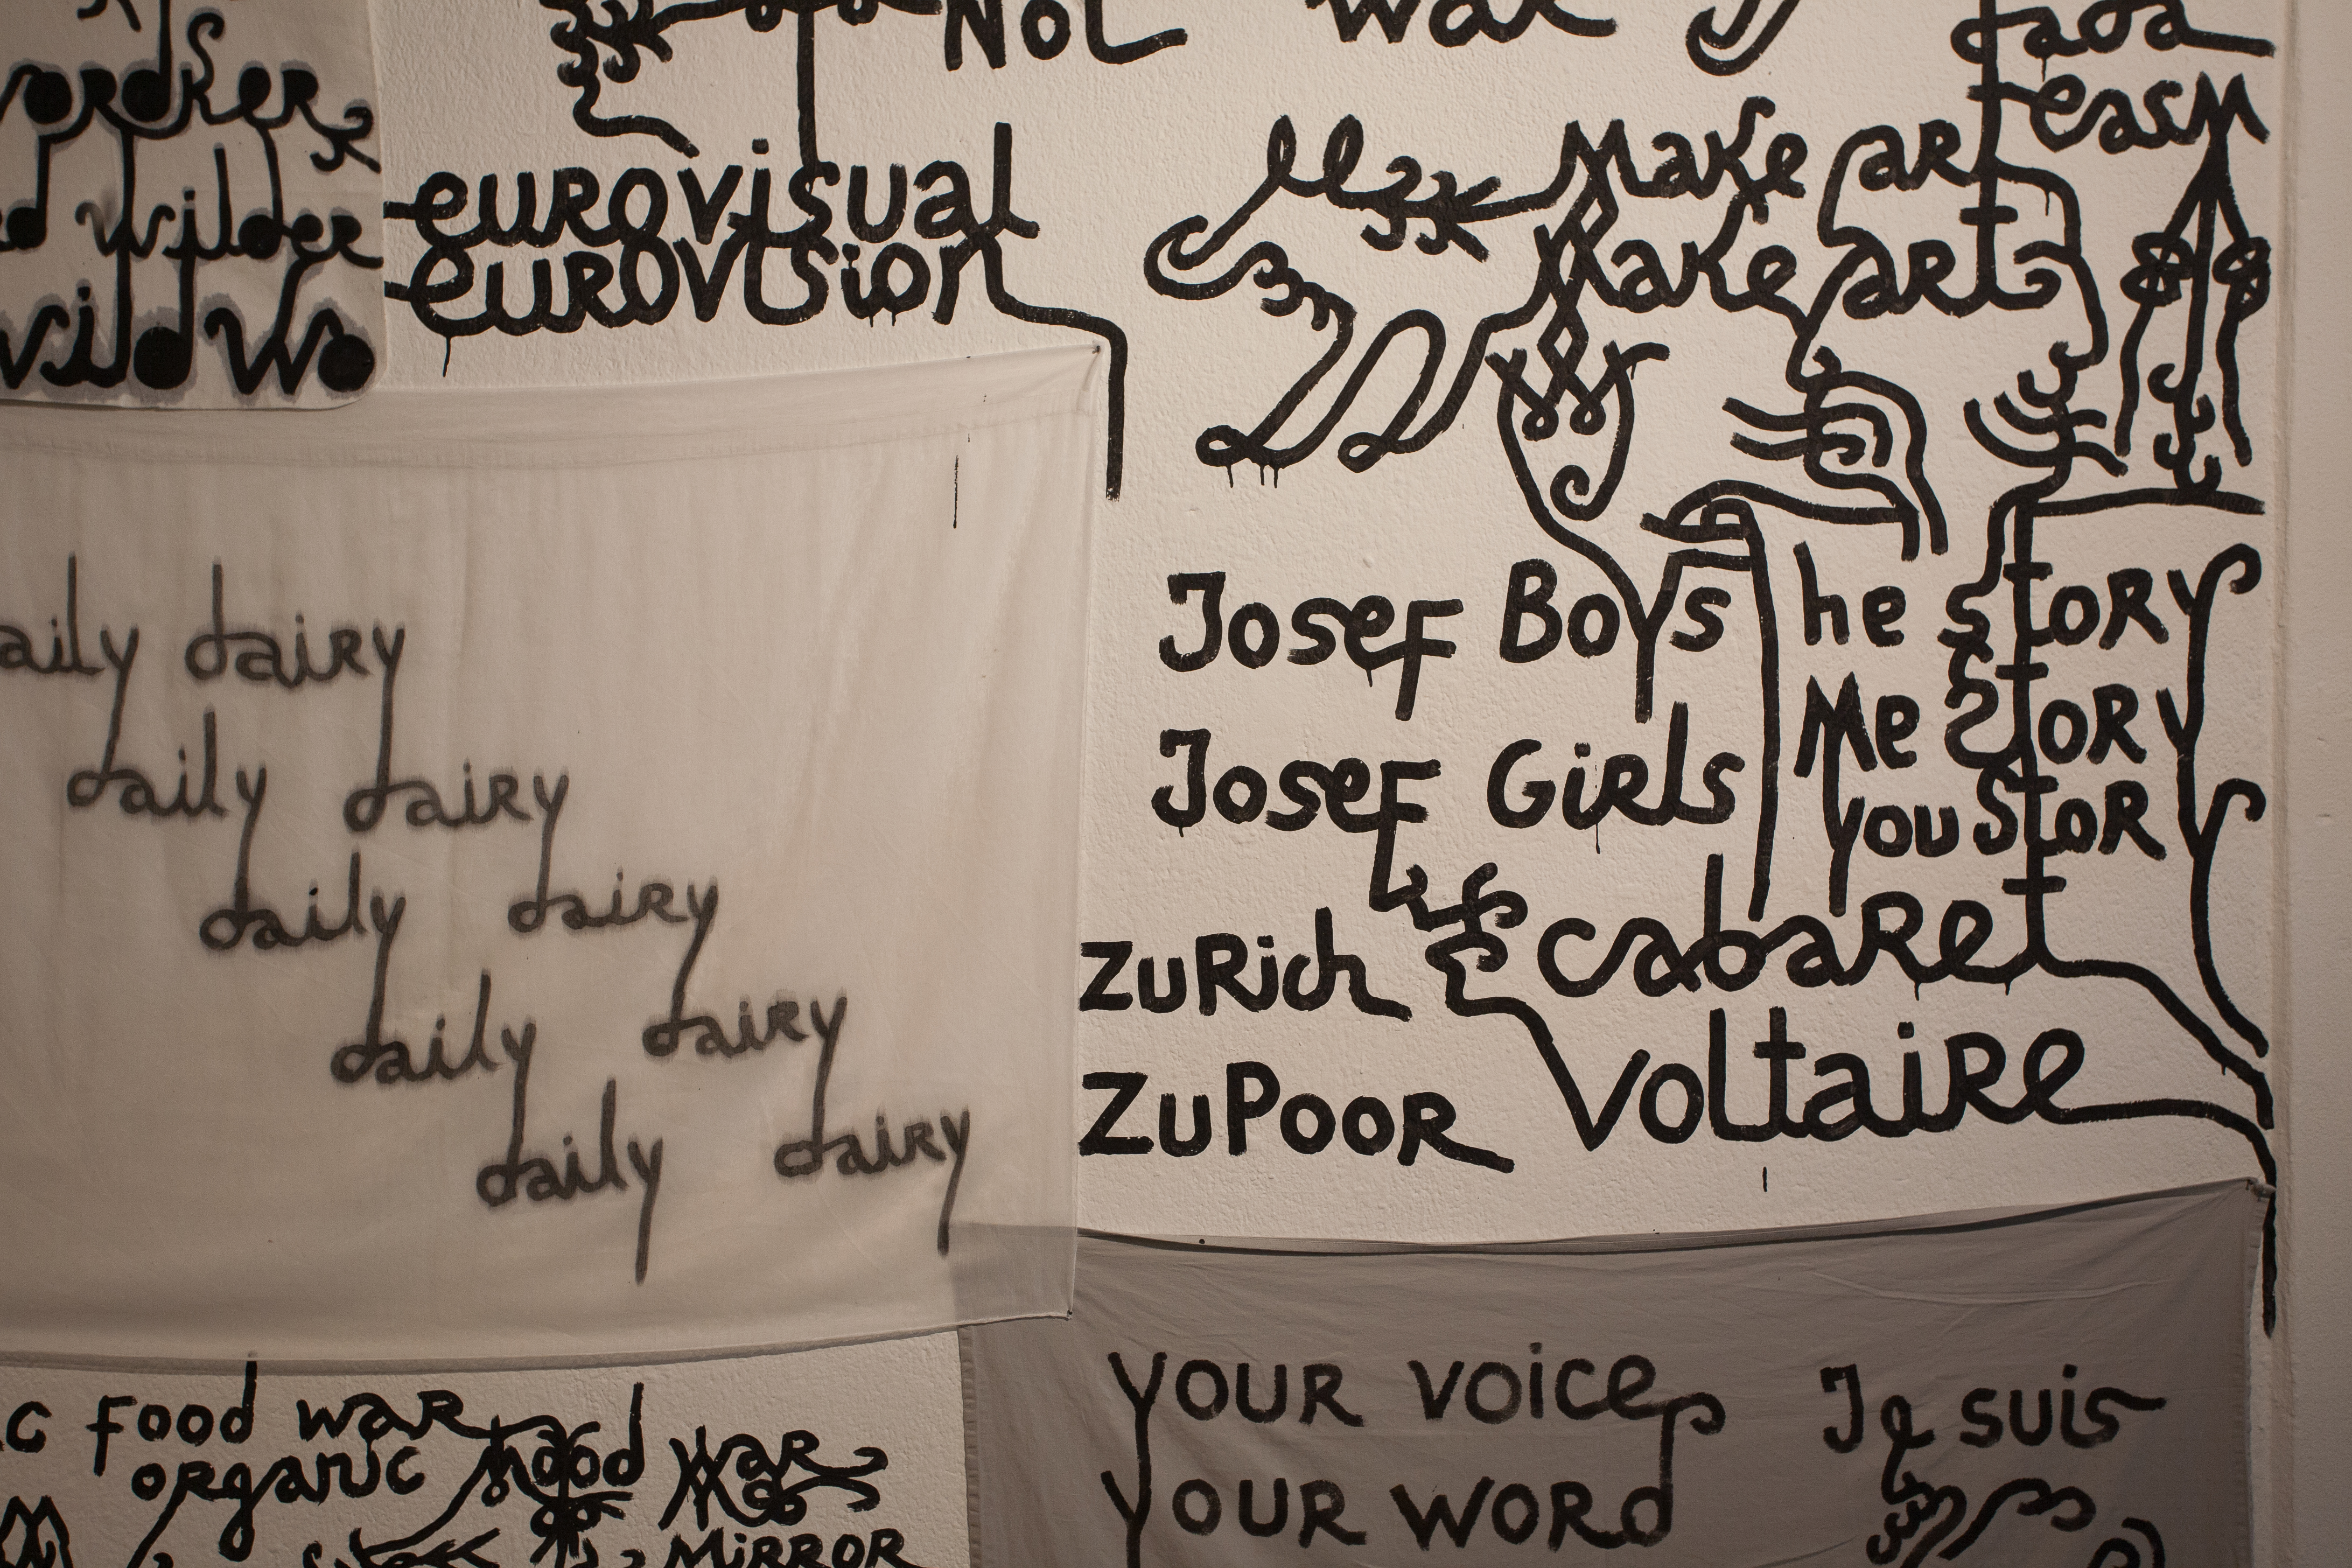 wilder
wild wo
Not war
dada
easm
eurovisual
eurovision
Make art
Make art
daily dairy
daily dairy
daily dairy
daily dairy
daily dairy
Josef Boys
Josef Girls
he story
Me story
you stor
zuRich
zuPooR
cabaret
voltaire
food war
organic mood war
MiRROR
your voice
your word
Je suis